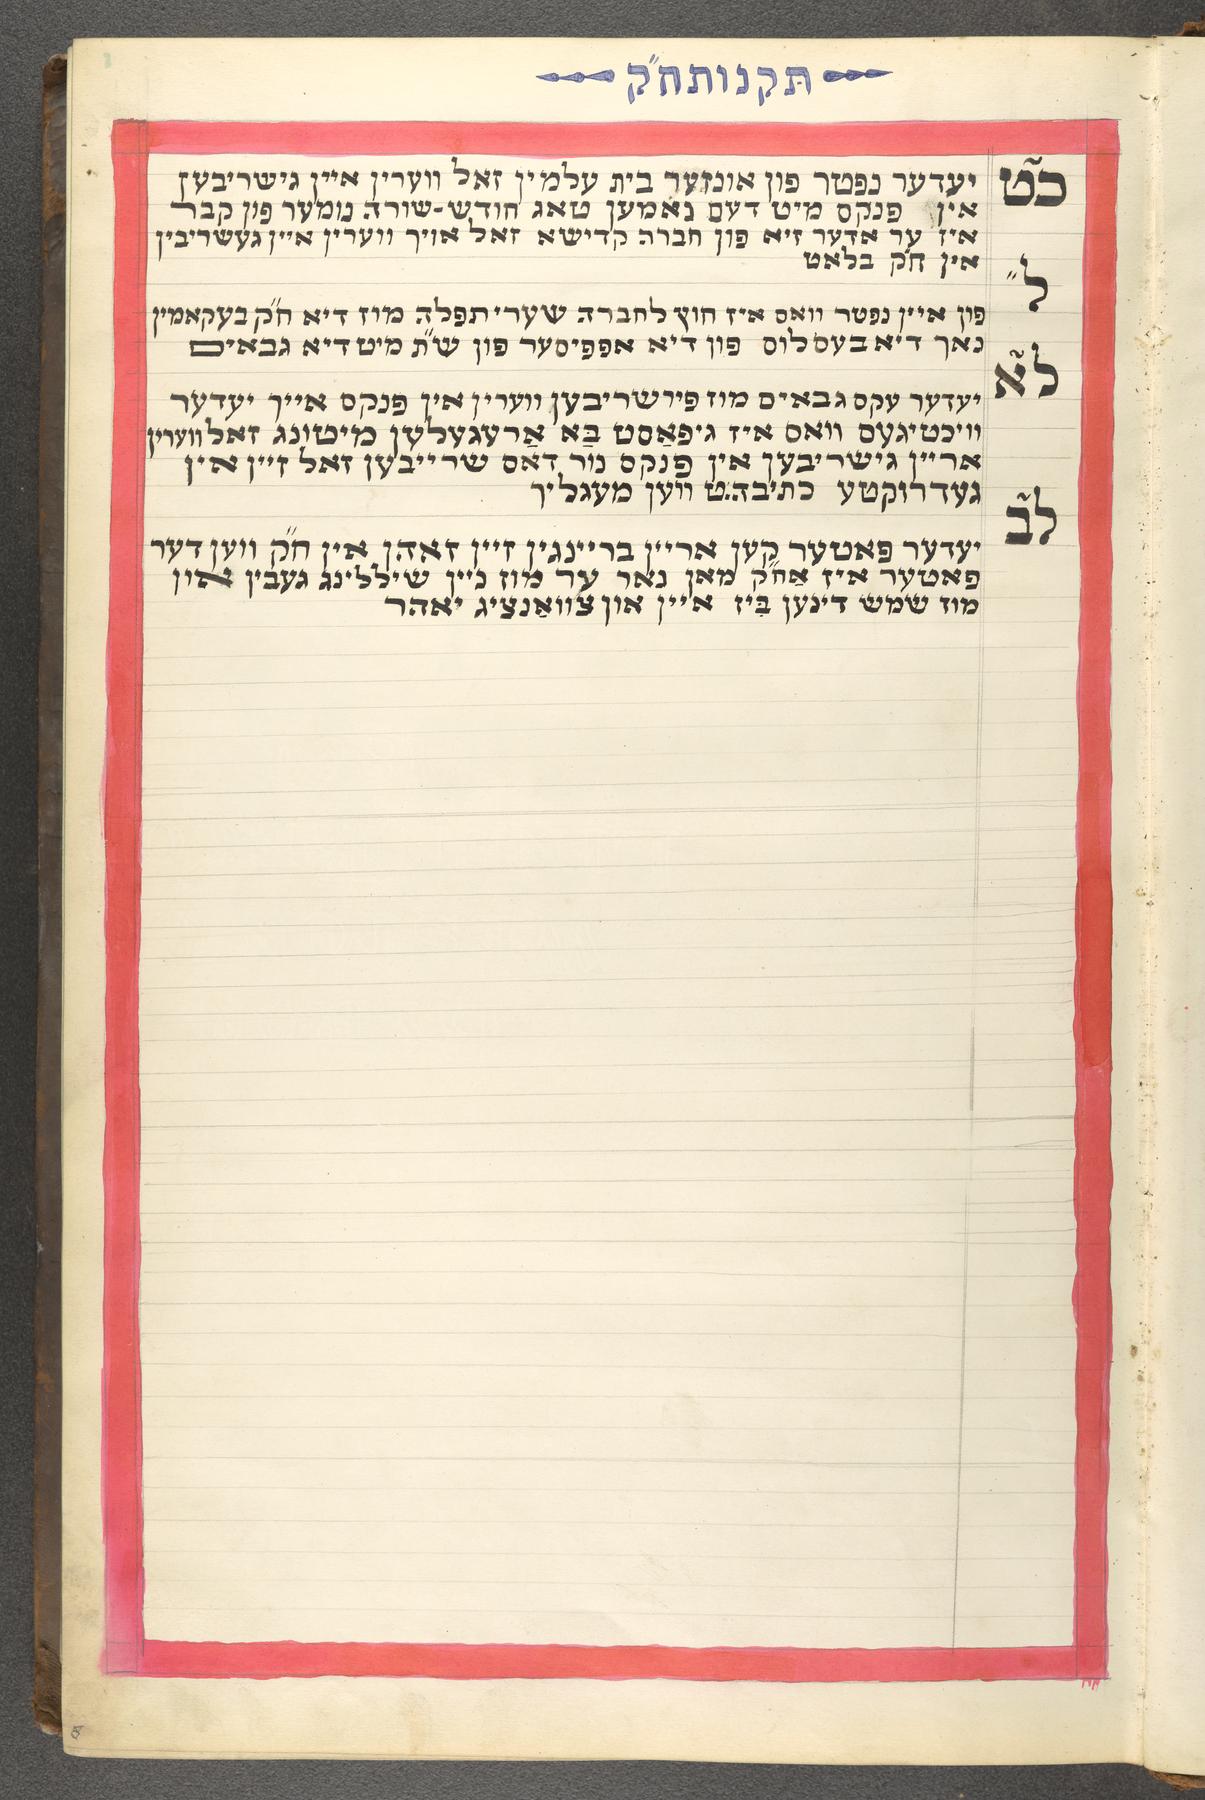 תקנות ח״ק
כ״ט
יעדער נפטר פון אונזער בית עלמין זאל ווערין איין גישריבען
אין פנקס מיט דעם נאמען טאג חודש-שורה נומער פון קבר
איז ער אדער זיא פון חברה קדישא זאל אויך ווערין איין געשריבין
אין ח״ק בלאט
ל״
פון איין נפטר וואס איז חוץ לחברה שערי תפלה מוז דיא ח״ק בעקאמין
נאך דיא בעסלוס פון דיא אפפיסער פון ש״ת מיט דיא גבאים
ל״א
יעדער עקס גבאים מוז פירשריבען ווערין אין פנקס אייך יעדער
וויכטיגעס וואס איז גיפאַסט בַּא אַרעגעלען מיטונג זאל ווערין
אריין גישריבען אין פנקס נור דאס שרייבען זאל זיין אין
געדרוקטע כתיבה.ט ווען מעגליך
ל״ב
יעדער פאטער קען אריין בריינגין זיין זאהן אין ח״ק ווען דער
פאטער איז אַח״ק מאן נאר ער מוז ניין שיללינג געבין און
מוז שמש דינען בִּיז איין און צוואַנציג יאהר